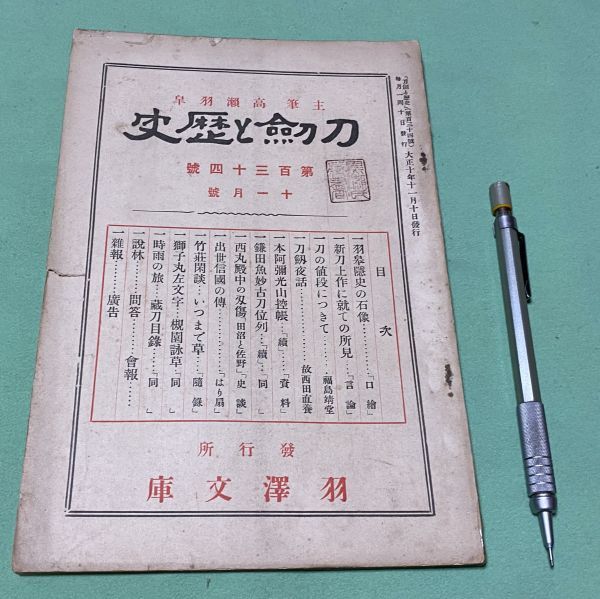 「刀劍と歷史」(第百三十四號)
每月一回十日發行
大正十年十一月十日發行
主筆 高瀨羽皐
刀劍と歷史
第百三十四號
十一月號
目次
一羽皋隱史の石像……「口繪」
一新刀上作に就ての所見…「言論」
一刀の値段につきて……福島靖堂
一刀劔夜話……故西田直養
一本阿彌光山控帳…「續」…「資料」
一鎌田魚妙古刀位列…「續」…同
一西丸殿中の刄傷 田沼と佐野「史談」
一出世信國の傳……「はり扇」
一竹莊閑談…いつまで草…「隨錄」
一獅子丸左文字…槻園詠草「同」
一時雨の旅…藏刀目錄…「同」
一說林……問答……會報……
一雜報……廣告
發行所
羽澤文庫